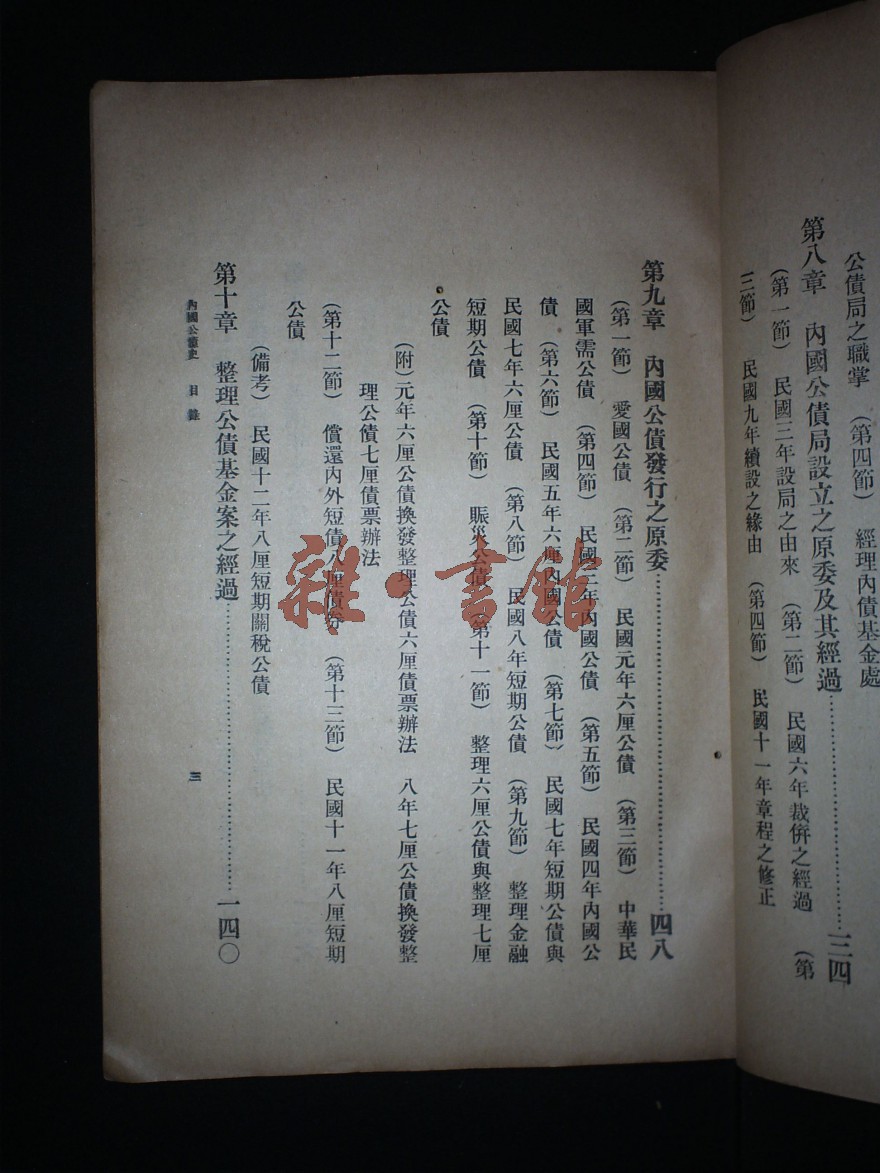 公債局之職掌　(第四節)　經理內債基金處
第八章　內國公債局設立之原委及其經過……三四
(第一節)　民國三年設局之由來　(第二節)　民國六年裁併之經過　(第
三節)　民國九年續設之緣由　(第四節)　民國十一年章程之修正
第九章　內國公債發行之原委……四八
(第一節)　愛國公債　(第二節)　民國元年六厘公債　(第三節)　中華民
國軍需公債　(第四節)　民國三年內國公債　(第五節)　民國四年內國公
債　(第六節)　民國五年六厘內國公債　(第七節)　民國七年短期公債與
民國七年六厘公債　(第八節)　民國八年短期公債　(第九節)　整理金融
短期公債　(第十節)　賑災公債　(第十一節)　整理六厘公債與整理七厘
公債
(附)元年六厘公債換發整理公債六厘債票辦法　八年七厘公債換發整
理公債七厘債票辦法
(第十二節)　償還內外短債八厘債券　(第十三節)　民國十一年八厘短期
公債
(備考)　民國十二年八厘短期關稅公債
第十章　整理公債基金案之經過……一四〇
內國公債史　目錄　三
雜·書館